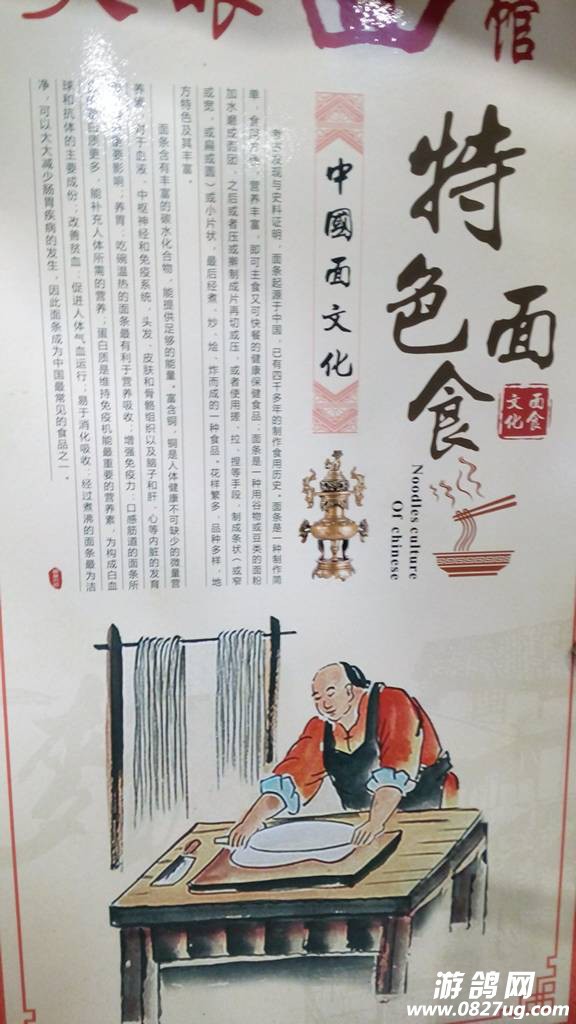 眼面馆
特色面食
面食文化
Noodles culture
Of chinese
中國面文化
考古发现与史料证明，面条起源于中国，已有四千多年的制作食用历史。面条是一种制作简
单，食用方便，营养丰富，即可主食又可快餐的健康保健食品；面条是一种用谷物或豆类的面粉
加水磨成面团，之后或者压或擀制成片再切或压，或者使用搓、拉、捏等手段，制成条状（或窄
或宽，或扁或圆）或小片状，最后经煮、炒、烩、炸而成的一种食品。花样繁多，品种多样，地
方特色及其丰富。
面条含有丰富的碳水化合物，能提供足够的能量。富含铜，铜是人体健康不可缺少的微量营
养素，对于血液、中枢神经和免疫系统，头发、皮肤和骨骼组织以及脑子和肝、心等内脏的发育
重要影响；养胃：吃碗温热的面条最有利于营养吸收；增强免疫力：口感筋道的面条所
蛋白质更多，能补充人体所需的营养；蛋白质是维持免疫机能最重要的营养素，为构成白血
球和抗体的主要成份；改善贫血；促进人体气血运行；易于消化吸收；经过煮沸的面条最为洁
净，可以大大减少肠胃疾病的发生，因此面条成为中国最常见的食品之一。
游鸽网
www.0827ug.com